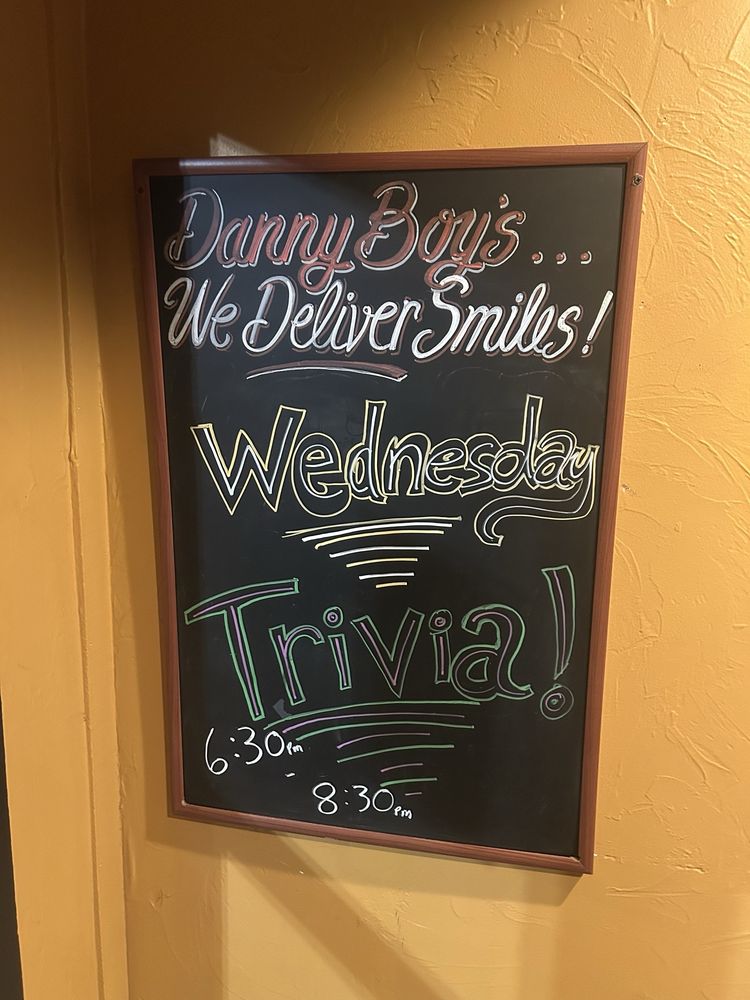 Danny Boy's...
We Deliver Smiles!
Wednesday
Trivia!
6:30pm
-
8:30pm